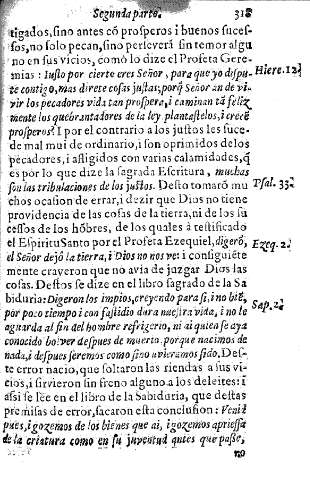 Segunda parte. 318
tigados, sino antes cō prosperos i buenos suces-
sos, no solo pecan, sino perseverā sin temor algu
no en sus vicios, comò lo dize el Profeta Gere-
mias: Iusto por cierto eres Señor, para que yo dispu-
te contigo, mas direte cosas justas, porq̃ Señor an de vi-
vir los pecadores vida tan prospera, i caminan tā feliz
mente los quebrantadores de la ley plantastelos, i crecē
prosperos? I por el contrario a los justos les suce-
de mal mui de ordinario, i son oprimidos de los
pecadores, i afligidos con varias calamidades, q̃
es por lo que dize la sagrada Escritura, muchas
son las tribulaciones de los justos. Desto tomarō mu
chos ocasion de errar, i dezir que Dios no tiene
providencia de las cosas de la tierra, ni de los su
cessos de los hōbres, de los quales à testificado
el Espiritu Santo por el Profeta Ezequiel, digerō,
el Señor dejò la tierra, i Dios no nos ve: i consiguiēte
mente crayeron que no avia de juzgar Dios las
cosas. Destos se dize en el libro sagrado de la Sa
biduria: Digeron los impios, creyendo para si, i no biē,
por poco tiempo i con fastidio dura nuestra vida, i no le
aguarda al fin del hombre refrigerio, ni ai quien se aya
conocido bolver despues de muerto. porque nacimos de
nada, i despues seremos como sino uvieramos sido. Des-
te error nacio, que soltaron las riendas a sus vi-
cios, i sirvieron sin freno alguno a los deleites: i
assi se lèe en el libro de la Sabiduria, que destas
premisas de error, sacaron esta conclusion: Venid
pues, i gozemos de los bienes que ai, i gozemos apriessa
de la criatura como en su juventud antes que passe,
no
Hiere. 12.
Psal. 33.
Ezeq. 2.
Sap. 2.